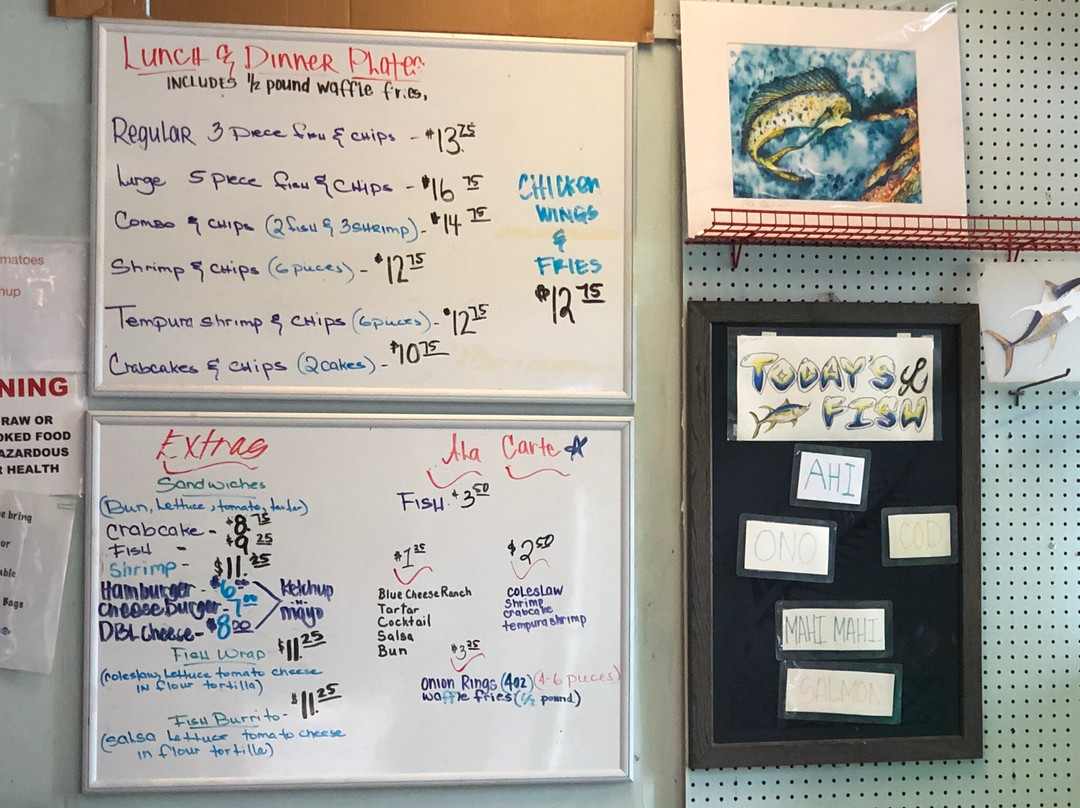 Lunch & Dinner Plates
INCLUDES 1/2 pound waffle fries,
Regular 3 piece fish & chips - $13.75
Large 5 piece fish & chips - $16 75
Combo & chips (2 fish & 3 shrimp) - $14 75
Shrimp & chips (6 pieces) - $12 75
Tempura shrimp & chips (6 pieces) - $12 75
Crabcakes & chips (2 cakes) - $10 75
CHICKEN
WINGS
&
FRIES
$12 75
Extras
Sandwiches
(Bun, Lettuce, tomato, tartar)
Crabcake - $8.75
FISH - $9 25
Shrimp - $11.25
Hamburger - $6 00
Cheeseburger - 7 00
DBL Cheese - $8 00
Ketchup
mayo
Fish Wrap $11.25
(coleslaw, Lettuce tomato cheese
in flour tortilla)
Fish Burrito - $11.25
(salsa Lettuce tomato cheese
in flour tortilla)
Ala Carte
FISH $3 50
$1 25
Blue Cheese Ranch
Tartar
Cocktail
Salsa
Bun
$2 50
coleslaw
shrimp
crabcake
tempura shrimp
$3 25
Onion Rings (4oz) (4-6 pieces)
waffle fries (1/2 pound)
TODAY'S
FISH
AHI
ONO
COD
MAHI MAHI
SALMON
matoes
hup
NING
RAW OR
OKED FOOD
AZARDOUS
R HEALTH
e bring
ur
able
Bags